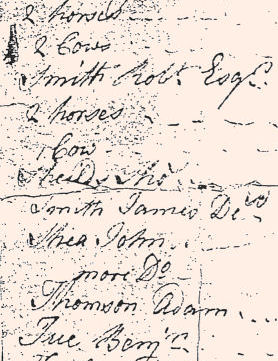 2 horses
2 Cows
Smith Robt Esqr
2 horses
1 Cow
Sheids Thos
Smith James Decd
Shea John
more Do
Thomson Adam
True Benjn